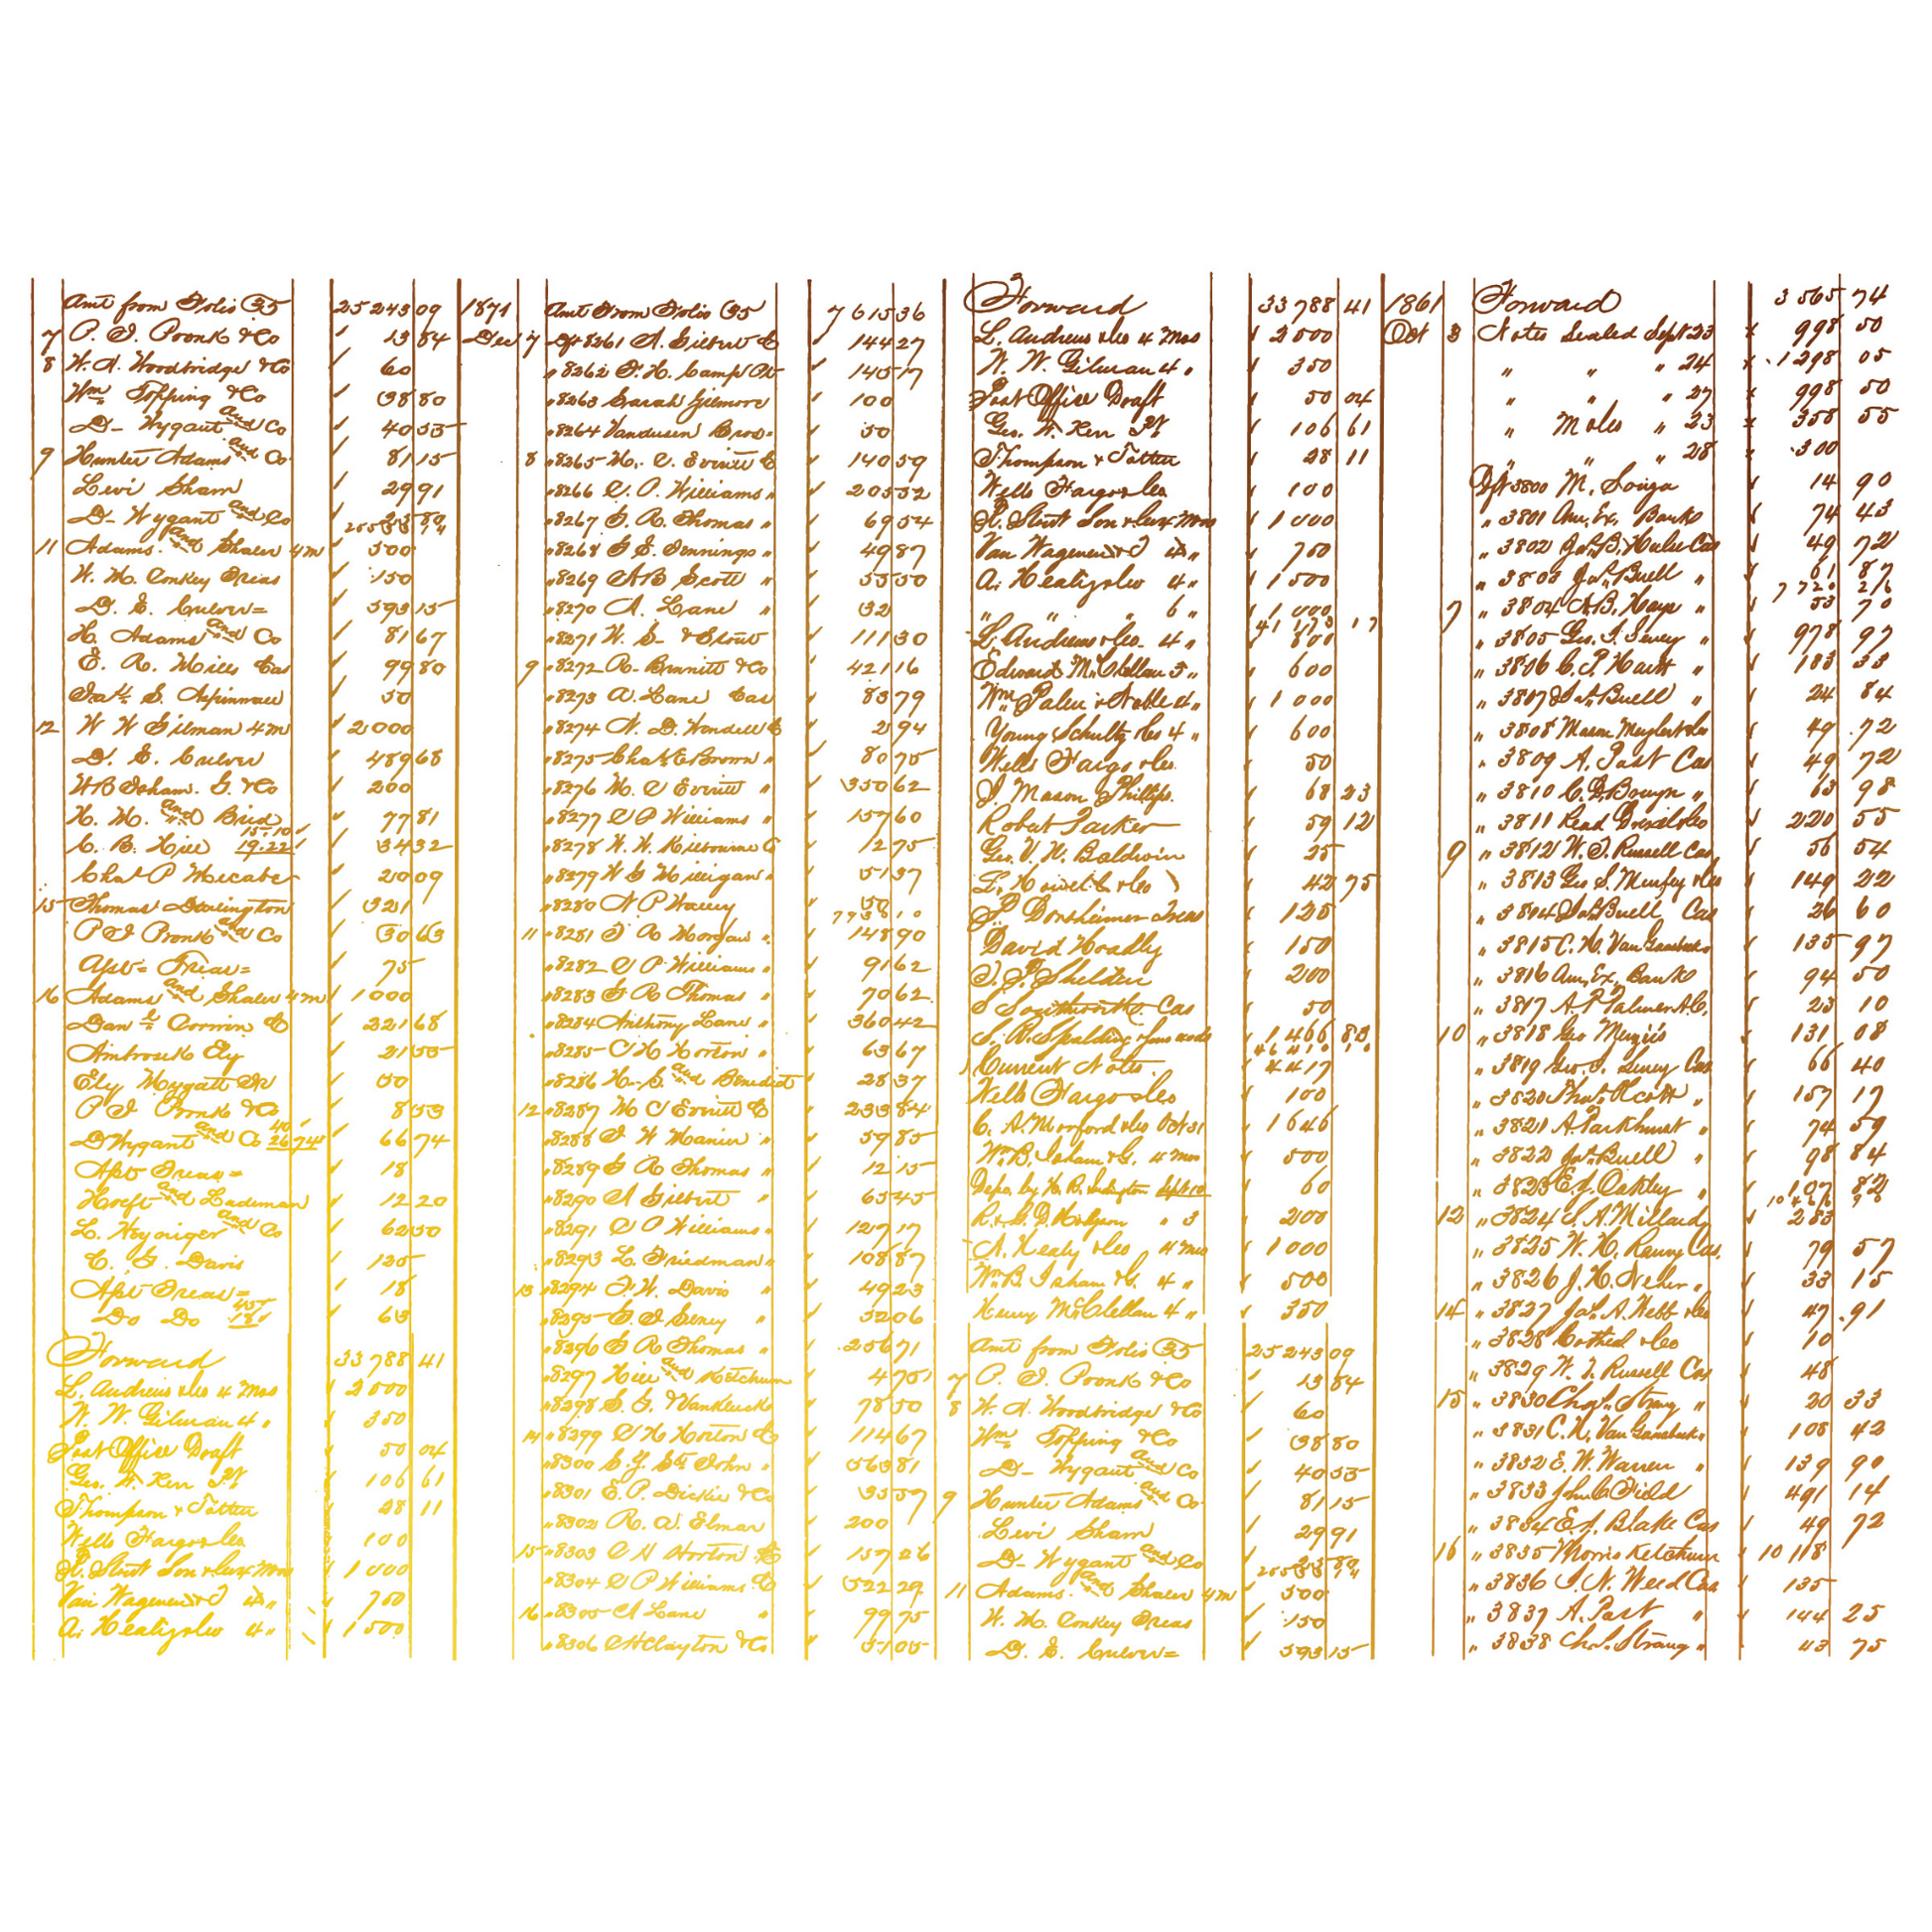 Amt from Folio 35 25243 09
7 P. I. Pronk & Co 13 84
8 W. A. Woodbridge & Co 60
Wm Topping & Co 38 80
D- Wygant and Co 40 55
9 Hunter Adams and Co 81 15
Levi Sham 29 91
D- Wygant and Co
11 Adams and Shaler 4m 500
W. M. Conkey Treas 150
D. E. Culver= 593 15
H. Adams and Co 81 67
E. R. Mills Cas 99 80
50
12 W W Gilman 4m 2000
D. E. Culver 489 68
W B Isham. G. & Co 200
H. M. and Bird 77 81
15.10
C. B. Hill 19.22 34 32
Chas P Mecabe 20 09
15 Thomas Darlington 321
P I Pronk and Co 30 63
Apt= Treas= 75
16 Adams and Shaler 4m 1000
Danl Corwin 221 68
Ambrose K Ely 21 55
Ely Mygatt Jr 50
P I Pronk & Co 8 53
D Wygant and Co 26 74 66 74
Apt Treas= 18
Hoeft and Ladiman 12 20
L. Weyniger and Co 62 50
C. G. Davis 125
Apt Treas= 18
Do Do 63
Forward 33 788 41
L. Andrews & Co 4 Mos 2500
W. W. Gilman 4 " 350
Post Office Draft 50 04
Geo. W. Kerr Pt 106 61
Thompson & Totten 28 11
Wells Fargo & Co 100
1 000
Van Wagenen & J 4 " 750
A. Healy & Co 4 " 1 500
1871 Amt From Folio 35 7615 36
Dec 7 Dft 8261 A. Gilbert C 144 27
" 8262 F. H. Camp 145 17
" 8263 Sarah Gilmore 100
" 8264 Vandusen Bros= 50
8 " 8265 M. C. Everitt C 140 59
" 8266 C. P. Williams " 205 52
" 8267 G. R. Thomas " 69 54
" 8268 G S. Jennings " 49 87
" 8269 A B Scott " 55 50
" 8270 A. Lane " 32
" 8271 W. S- & Stout 111 30
9 " 8272 R- Brunitt & Co 421 16
" 8273 A. Lane Cas 83 79
" 8274 N. D. Wendell C 2 94
" 8275 Chas E Brown " 80 75
" 8276 M. C Everitt " 350 62
" 8277 C P Williams " 157 60
" 8278 W. W. Kilbourne C 12 75
" 8279 W G Milligan " 51 37
" 8280 N P Haley 50
11 " 8281 T. R Morgan " 148 90
" 8282 C P. Williams " 91 62
" 8283 G R Thomas " 70 62
" 8284 Anthony Lane " 360 42
" 8285 C H Horton " 63 67
" 8286 H- S. and Benedict 28 37
12 " 8287 M C Everitt C 233 84
" 8288 J W Manier " 59 85
" 8289 G R Thomas " 12 15
" 8290 A Gilbert " 65 45
" 8291 C P Williams " 127 17
" 8293 L. Friedman " 108 87
13 " 8294 F. W. Davis " 49 23
" 8295 G. I Seney " 52 06
" 8296 G R Thomas " 256 71
" 8297 Hill and Ketchum 4 75
" 8298 S. G. & Vankleeck 78 50
14 " 8299 C H Horton C 114 67
" 8300 S. Y. St. John " 563 81
" 8301 E. P. Dickie & Co 35 57
" 8302 R. A. Elmar 200
15 " 8303 C H Horton C 157 26
" 8304 C P Williams C 522 29
16 " 8305 A Lane " 99 75
" 8306 C H Clayton & Co 51 05
Forward 33 788 41
L. Andrews & Co 4 Mos 2500
W. W. Gilman 4 " 350
Post Office Draft 50 04
Geo. W. Kerr Pt 106 61
Thompson & Totten 28 11
Wells Fargo & Co 100
1 000
Van Wagenen & J 4 " 750
A. Healy & Co 4 " 1 500
" " " 6 " 1 000
L. Andrews & Co. 4 " 800
Edward McClellan 5 " 600
Wm Palen & Noble 4 " 1 000
Young Schultz & Co 4 " 600
Wells Fargo & Co 50
J. Mason Phillips. 68 23
Robert Parker 59 12
Geo. V. W. Baldwin 25
L. Howell & Co 42 75
P. Dorsheimer Treas 125
David Hoadly 150
T. P. Shelden 200
S Southworth Cas 50
1 466 83
Current Notes. 4417
Wells Fargo & Co 100
C. A. Morford & Co Oct 31 1646
Wm B. Isham & G. 4 Mos 500
60
200
A. Healy & Co 4 Mos 1 000
Wm B. Isham & G. 4 " 500
Henry McClellan 4 " 350
Amt from Folio 35 25243 09
7 P. I. Pronk & Co 13 84
8 W. A. Woodbridge & Co 60
Wm Topping & Co 38 80
D- Wygant and Co 40 55
9 Hunter Adams and Co 81 15
Levi Sham 29 91
D- Wygant and Co
11 Adams and Shaler 4m 500
W. M. Conkey Treas 150
D. E. Culver= 593 15
1861 Forward 3 565 74
Oct 3 Notes Sealed Sept 23 998 50
" " " 24 1298 05
" " " 27 998 50
" Moles " 23 358 55
" " " 28 300
Dft 3800 M. Souza 14 90
" 3801 Am. Ex. Bank 74 43
" 3802 Jas. B. Hulse Cas 49 72
" 3803 Jas. Buell " 61 87
7 " 3804 A. B. Hays " 53 70
" 3805 Geo. I. Seney " 978 97
" 3806 C. P. Hartt " 183 33
" 3807 Jas. Buell " 24 84
" 3808 Mason 49 72
" 3809 A. Post Cas 49 72
" 3810 C. D. Bruyn " 63 98
" 3811 Read Drexel & Co 220 55
9 " 3812 W. T. Russell Cas 56 54
" 3813 Geo S. 149 22
" 3814 Jas. Buell Cas 26 60
" 3815 C. H. Van Gaasbeek 135 97
" 3816 Am. Ex. Bank 94 50
" 3817 A. P. Palmer & C. 23 10
10 " 3818 Geo Menzies 131 08
" 3819 Geo. I. Seney Cas 66 40
" 3820 Thos. Scott " 157 17
" 3821 A Parkhurst " 74 59
" 3822 Jas. Buell " 98 84
" 3823 E. J. Oakley " 107 82
12 " 3824 S. A. Millard 283
" 3825 W. H. Ranny Cas. 79 57
" 3826 J. H. Neher " 33 15
14 " 3827 Jas. A. Webb & Co 47 .91
" 3828 Cothed & Co 10
" 3829 W. T. Russell Cas 48
15 " 3830 Chas. Strang " 20 33
" 3831 C. H. Van Gaasbeek " 108 42
" 3832 E. W. Warren " 139 90
" 3833 John C Field 491 14
" 3834 E. J. Blake Cas 49 72
16 " 3835 Morris Ketchum 10 118
" 3836 J. N. Weed Cas 135
" 3837 A. Post " 144 25
" 3838 Chs. Strang " 43 75